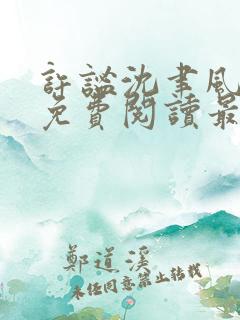 許謐沈聿風
免費閱讀最
鄭道溪
未經同意禁止转载